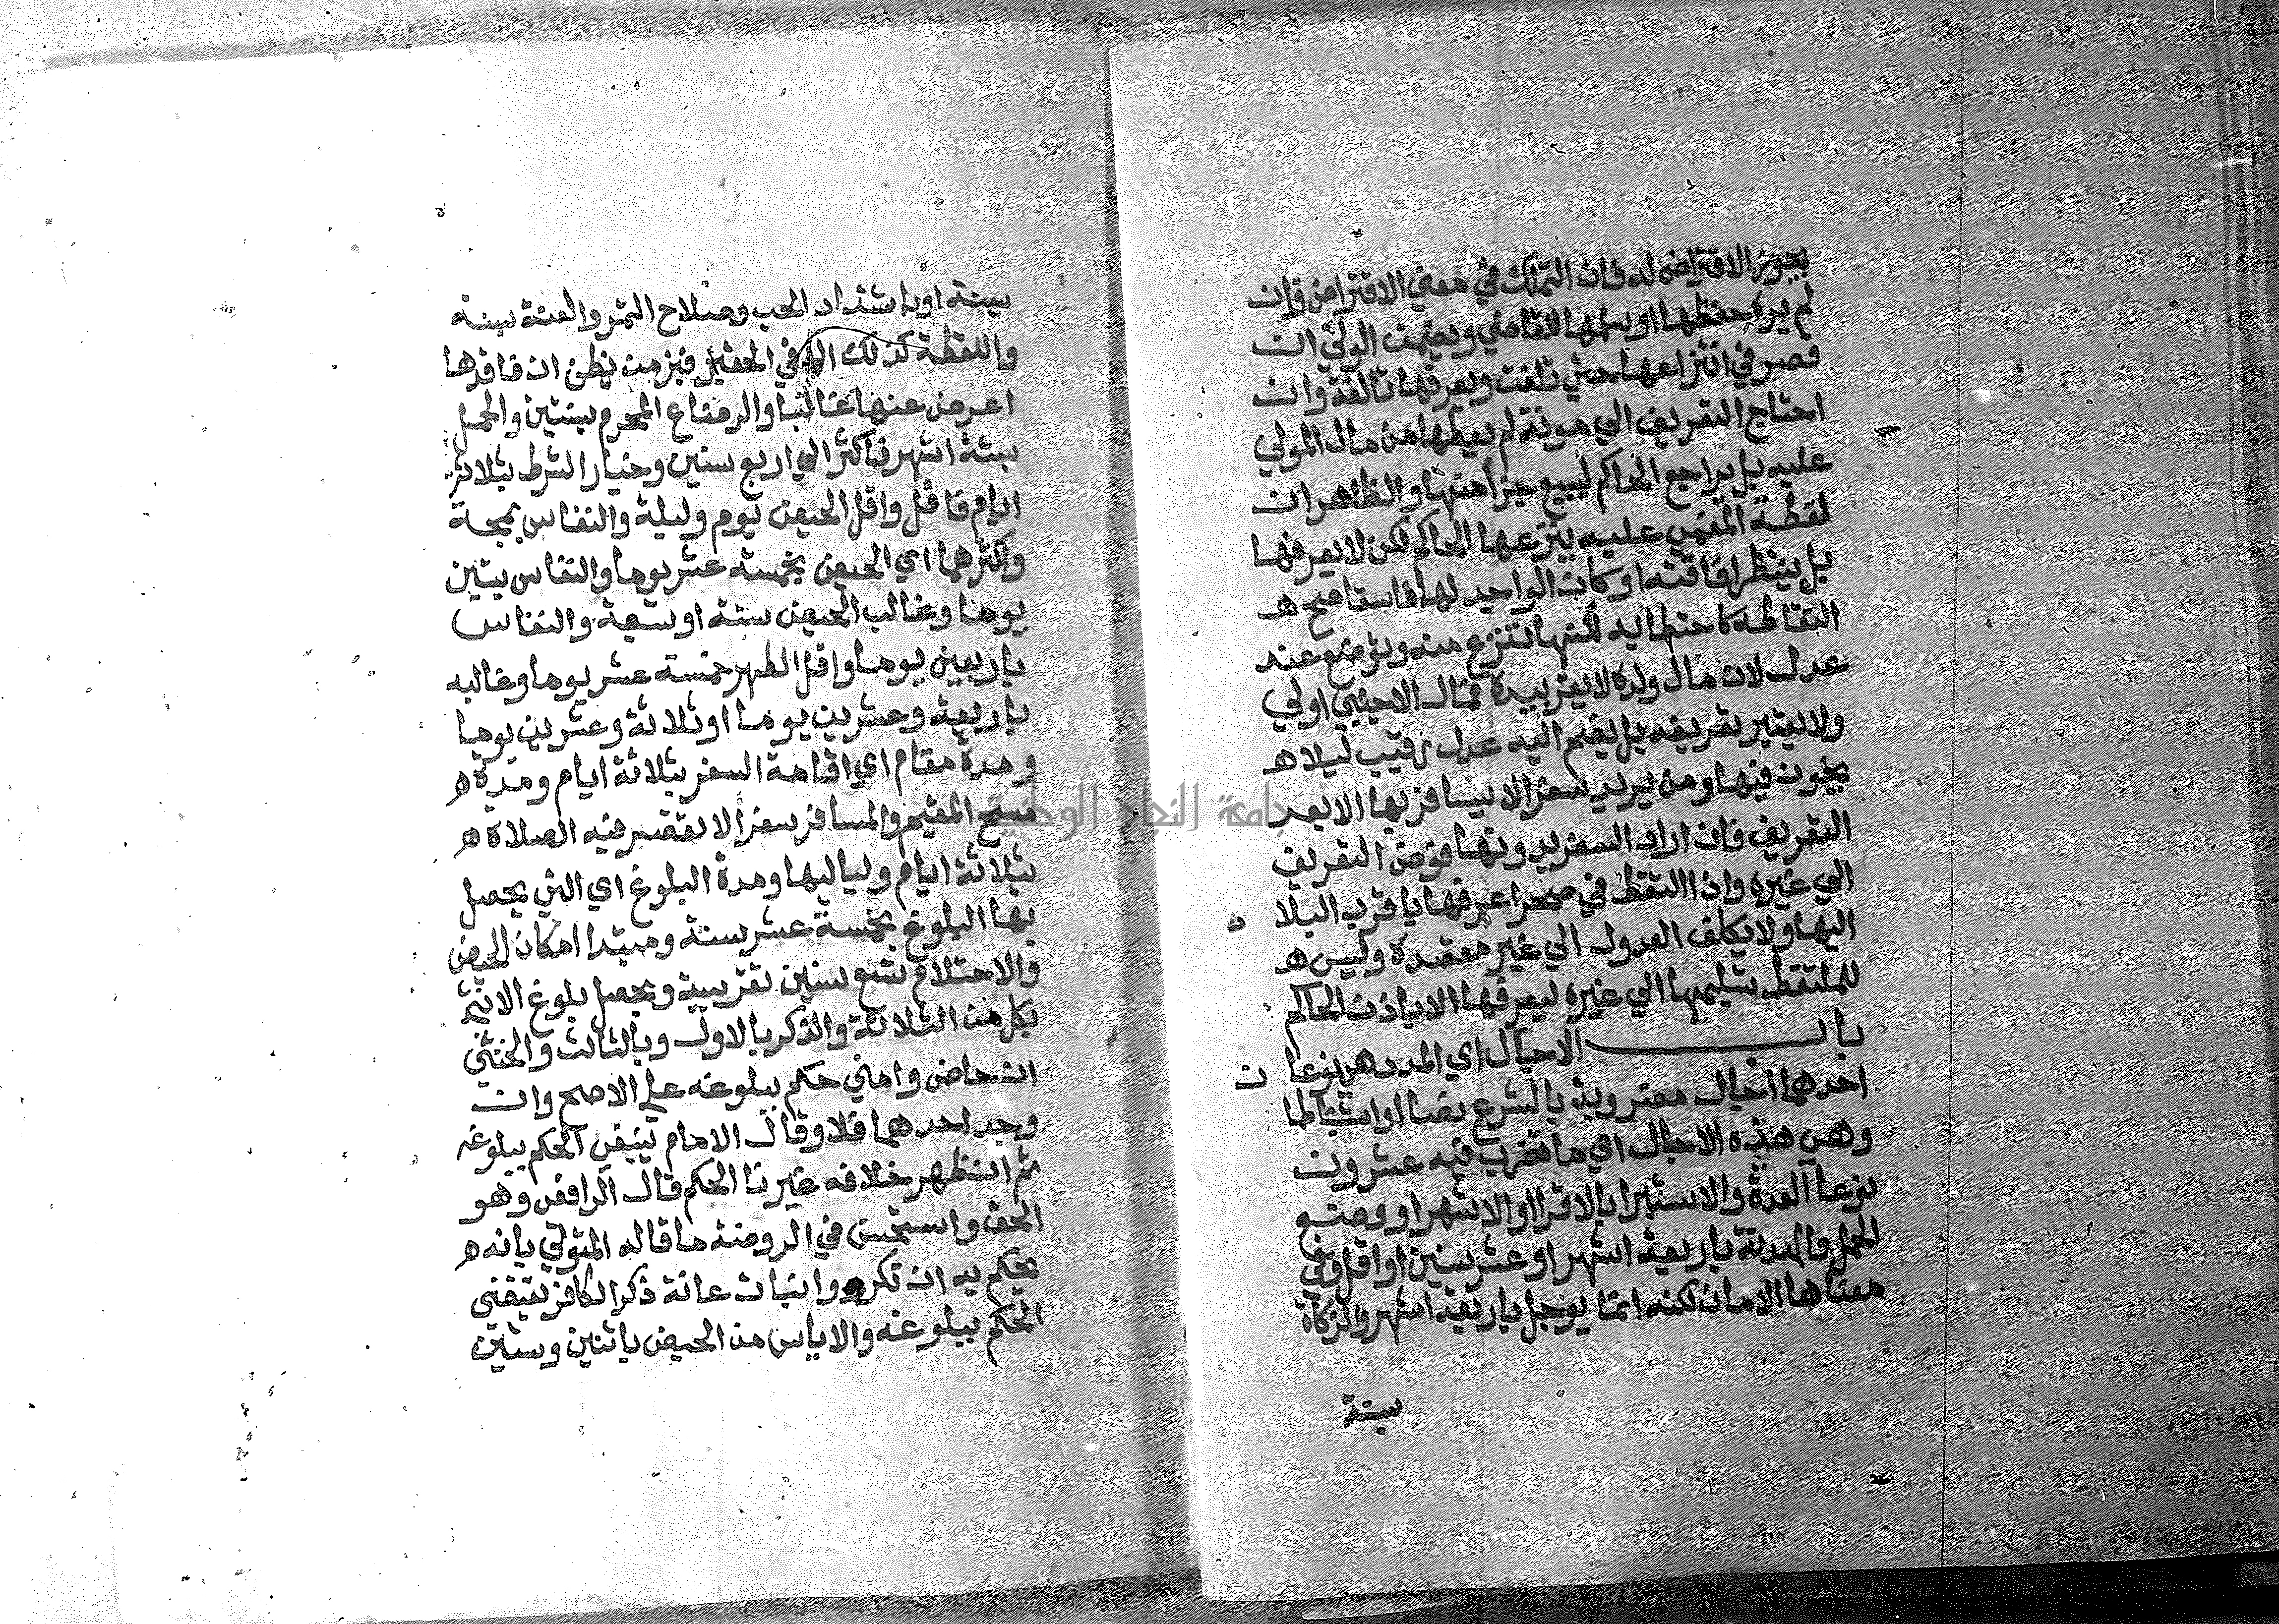 يجوز الاقتراض له فان التملك في معني الاقتراض فان
لم يره حفظها او سلمها للقاضي ويضمن الولي ان
قصر في انتزاعها حتي تلفت ويعرفها تالفة وان
احتاج التعريف الي مونة لم يعطها من مال المولي
عليه بل يراجع الحاكم ليبيع جزأ منها والظاهر ان
لقطة المغمي عليه ينزعها الحاكم لكن لا يعرفها
بل ينتظر افاقته او كان الواجد لها فاسقا صح ه
التقاطه كاحتطابه لكنها تنزع منه وتوضع عند
عدل لان مال ولده لا يقر بيده فمال الاجنبي اولي
ولا يعتبر تعريفه بل يضم اليه عدل رقيب ليلا ه
يخون فيها ومن يريد سفرا لا يسافر بها الا بعد
التعريف فان اراد السفر بدونها فوض التعريف
الي غيره وان التقط في صحرا عرفها باقرب البلاد
اليها ولا يكلف العدول الي غير مقصده وليس ه
للملتقط تسليمها الي غيره ليعرفها الا باذن الحاكم
باب الاجال اي المدد هي نوعان
احدهما اجال مضروبة بالشرع نصا او استنباطا
وهي هذه الاجال اي ما تضرب فيه عشرون
نوعا العدة والاستبرا بالاقرا او الاشهر او وضع
الحمل والهدنة باربعة اشهر او عشر سنين او اقل وفي
معناها الامان لكنه انما يوجل باربعة اشهر والزكاة
سنة
سنة او باشتداد الحب وصلاح الثمر والعنة سنة
واللقطة كذلك الا في الحقير فبزمن يظن ان فاقدها
اعرض عنها غالبا والرضاع المحرم بسنتين والحمل
بستة اشهر فاكثر الي اربع سنين وخيار الشرط بثلاثة
ايام فاقل واقل الحيض يوم وليلة والنفاس بمجة
واكثرهما اي الحيض بخمسة عشر يوما والنفاس بستين
يوما وغالب الحيض ستة او سبعة والنفاس
باربعين يوما واقل الطهر خمسة عشر يوما وغالبه
باربعة وعشرين يوما او ثلاثة وعشرين يوما
ومدة مقام اي اقامة السفر بثلاثة ايام ومدة ه
مسح المقيم والمسافر سفرا لا تقصر فيه الصلاة ه
بثلاثة ايام ولياليها ومدة البلوغ اي التي يحصل
بها البلوغ بخمسة عشر سنة ومبتدا امكان الحيض
والاحتلام تسع سنين تقريبية ويحصل بلوغ الانثي
بكل من الثلاثة والذكر بالاول وبالثالث والخنثي
ان حاض وامني حكم ببلوغه علي الاصح وان
وجد احدهما فلا وقال الامام ينبغي الحكم ببلوغه
ثم ان ظهر خلافه غيرنا الحكم قال الرافعي وهو
الحق واستحسن في الروضة ما قاله المتولي بانه ه
يحكم به ان تكرر وانبات عانة ذكر الكافر يقتضي
الحكم ببلوغه والاياس من الحيض باثنين وستين
جامعة النجاح الوطنية